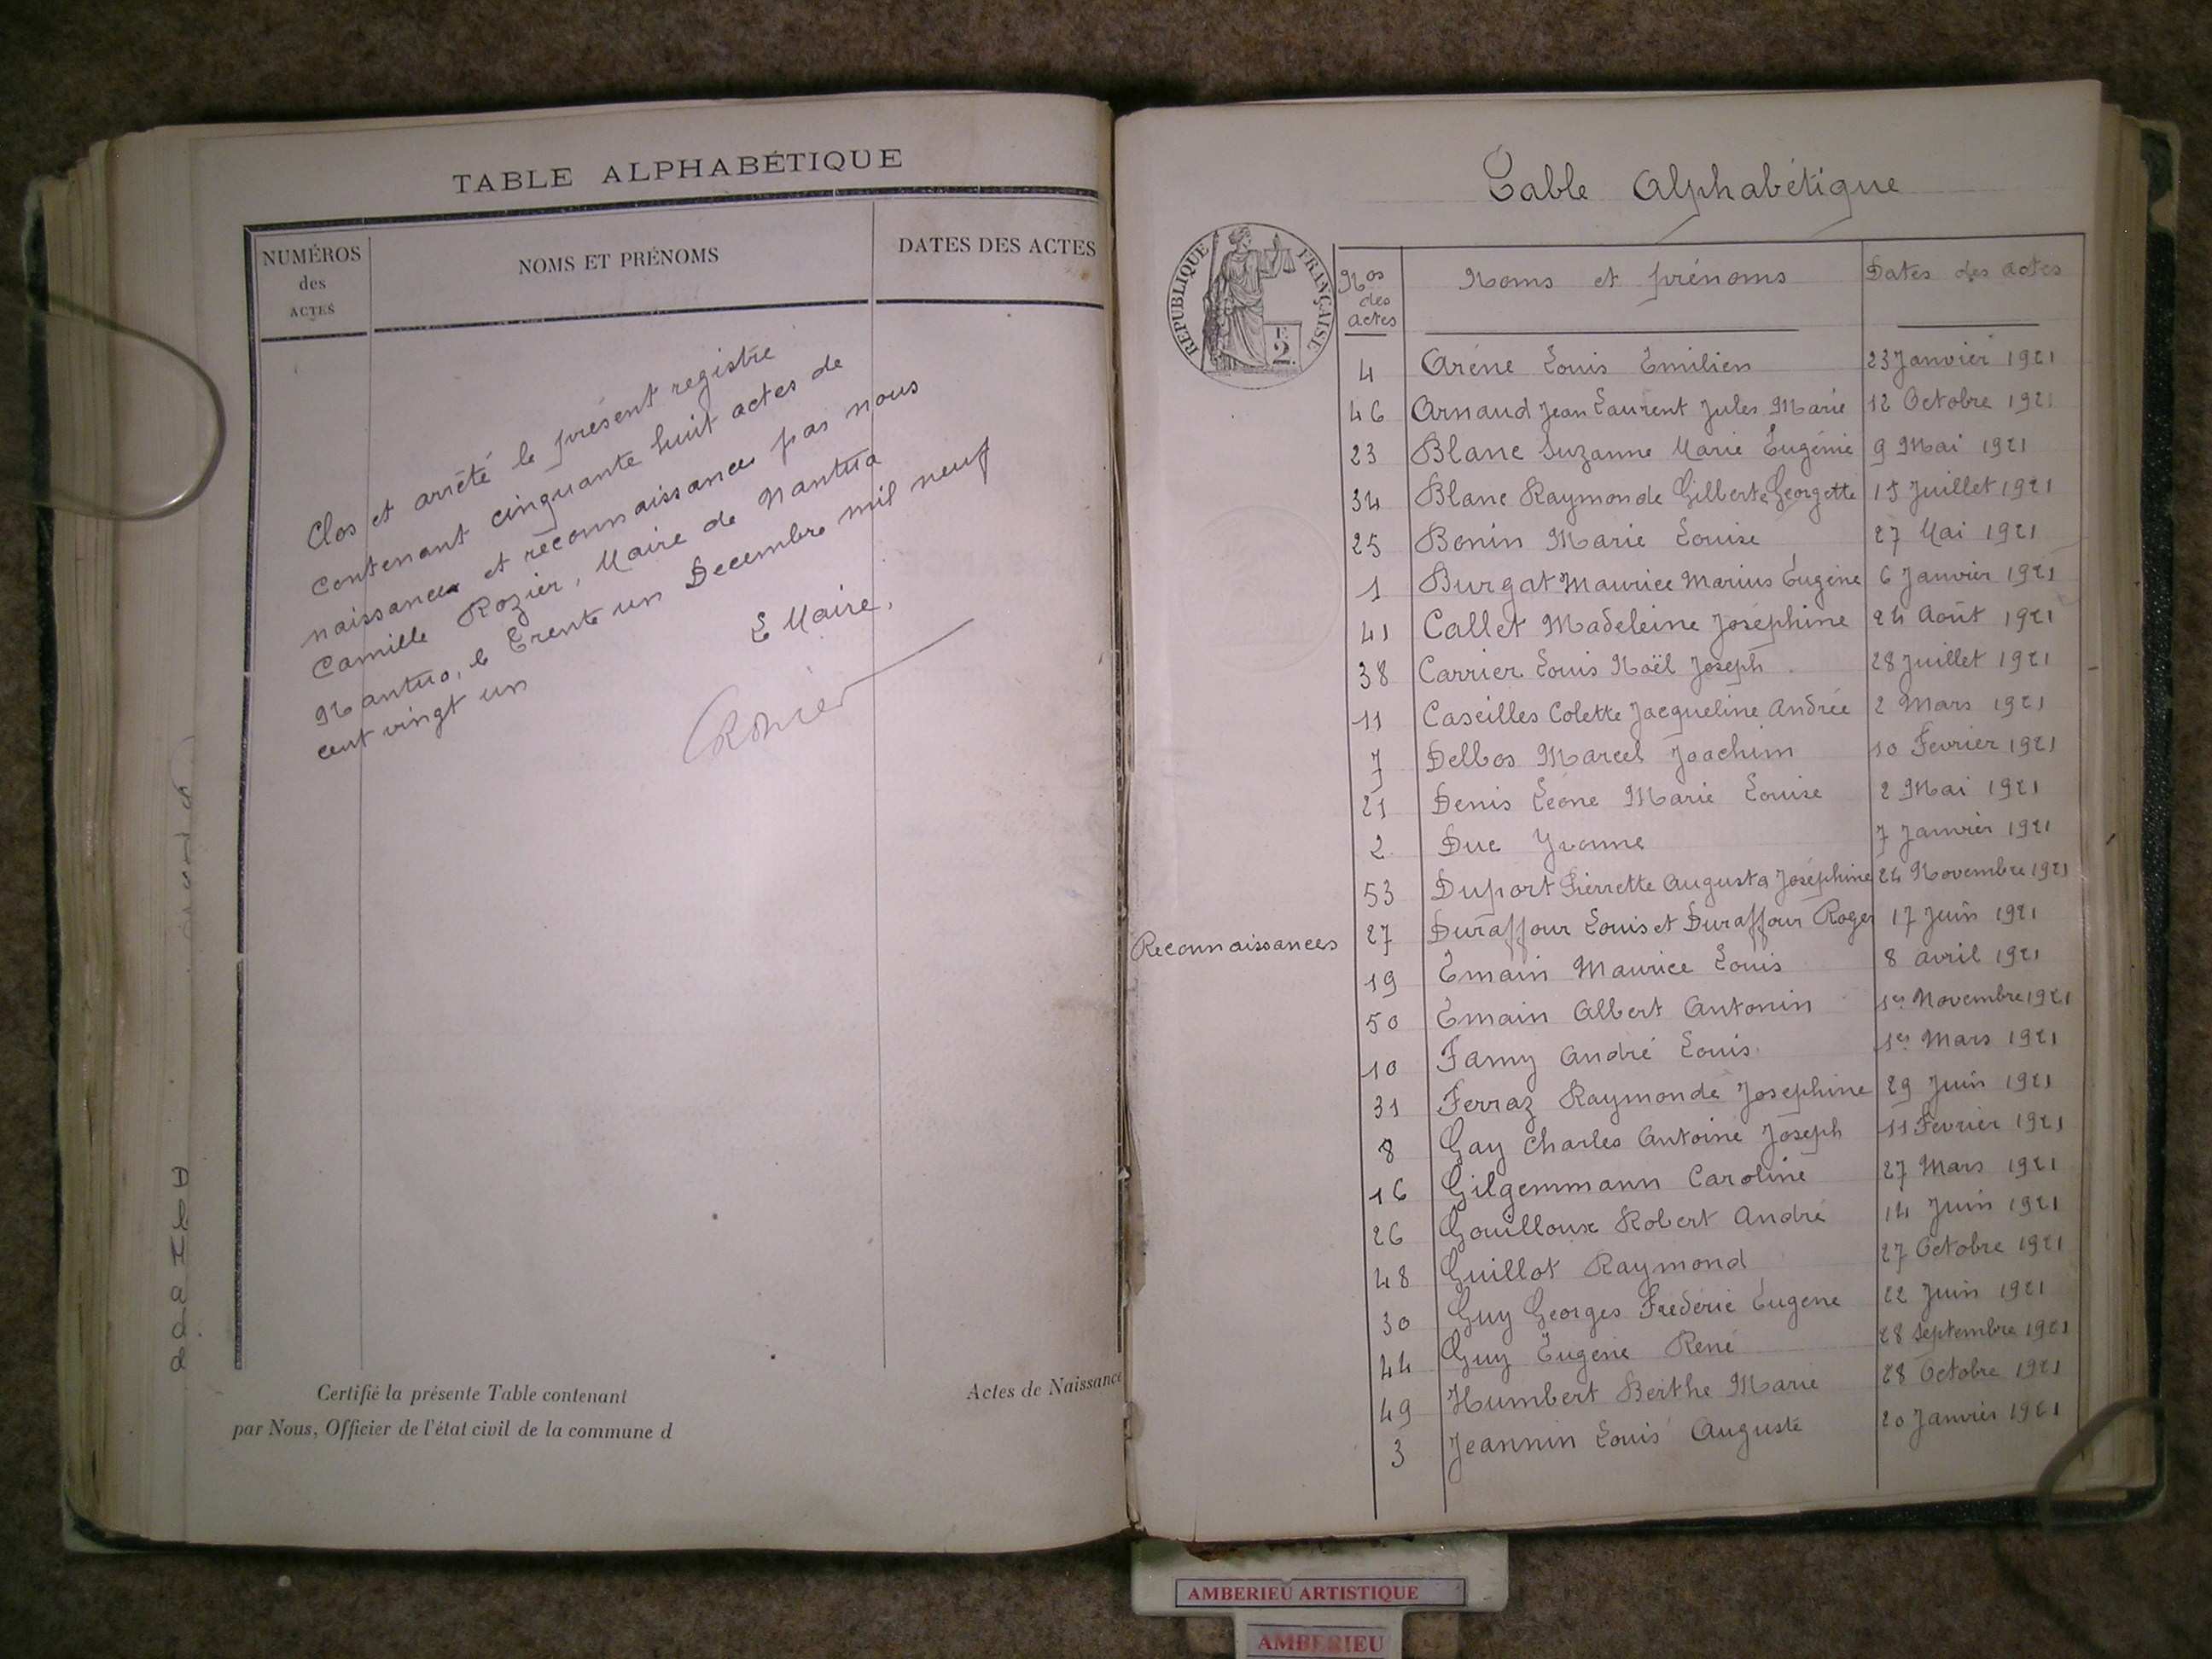 TABLE ALPHABÉTIQUE
NUMÉROS
des
ACTES
NOMS ET PRÉNOMS
DATES DES ACTES
Clos et arrêté le présent registre
contenant cinquante huit actes de
naissances et reconnaissances par nous
Camille Rozier, Maire de Nantua
Nantua, le Trente un Decembre mil neuf
cent vingt un
Le Maire,
Certifié la présente Table contenant
Actes de Naissance
par Nous, Officier de l'état civil de la commune d
Table Alphabétique
RÉPUBLIQUE FRANÇAISE
2
Nos
des
actes
Noms et prénoms
Dates des actes
4 Aréne Louis Emilien 23 Janvier 1921
46 Arnaud Jean Laurent Jules Marie 12 Octobre 1921
23 Blanc Suzanne Marie Eugénie 9 Mai 1921
34 Blanc Raymonde Gilberte Georgette 15 Juillet 1921
25 Bonin Marie Louise 27 Mai 1921
1 Burgat Maurice Marius Eugène 6 Janvier 1921
41 Callet Madeleine Joséphine 24 Août 1921
38 Carrier Louis Noël Joseph 28 Juillet 1921
11 Caseilles Colette Jacqueline Andrée 2 Mars 1921
7 Delbos Marcel Joachim 10 Fevrier 1921
21 Denis Léone Marie Louise 2 Mai 1921
2 Duc Yvonne 7 Janvier 1921
53 Duport Pierrette Augusta Joséphine 24 Novembre 1921
Reconnaissances 27 Duraffour Louis et Duraffour Roger 17 Juin 1921
19 Emain Maurice Louis 8 avril 1921
50 Emain Albert Antonin 1er Novembre 1921
10 Famy André Louis 1er Mars 1921
31 Ferraz Raymonde Josephine 29 Juin 1921
8 Gay Charles Antoine Joseph 11 Fevrier 1921
16 Gilgemmann Caroline 27 Mars 1921
26 Gouilloux Robert André 14 Juin 1921
48 Guillot Raymond 27 Octobre 1921
30 Guy Georges Frédéric Eugene 22 Juin 1921
44 Guy Eugène René 28 Septembre 1921
49 Humbert Berthe Marie 28 Octobre 1921
3 Jeannin Louis Auguste 20 Janvier 1921
AMBERIEU ARTISTIQUE
AMBERIEU